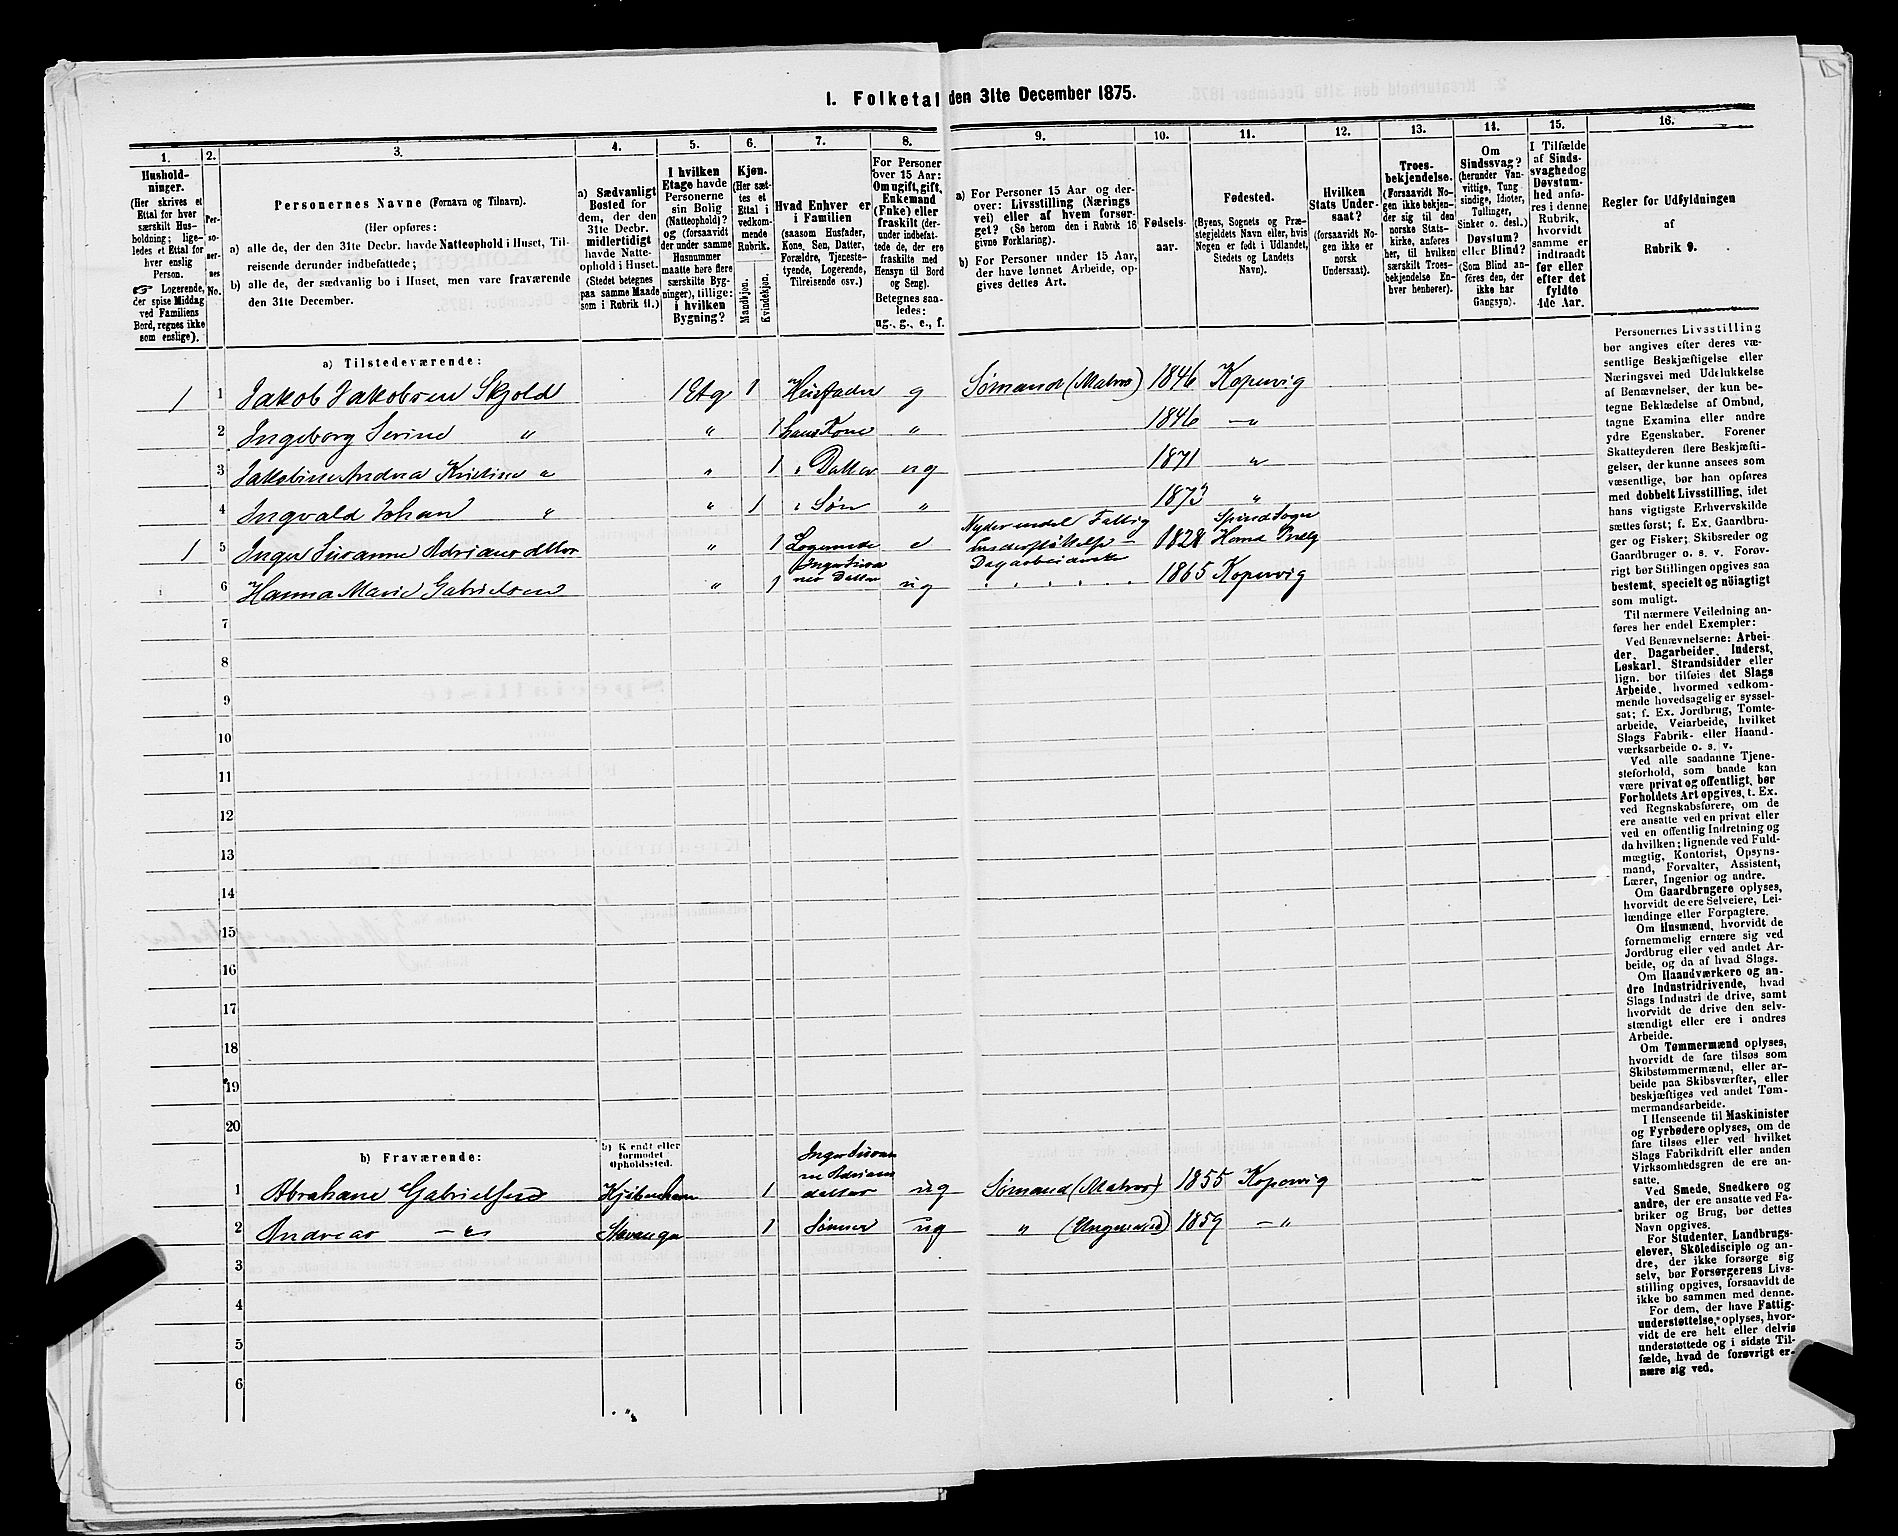 1. Folketal den 31te December 1875.
1.
2.
3.
4.
5.
6.
7.
8.
9.
10.
11.
12.
13.
14.
15.
16.
Husholdninger.
(Her skrives et
Ettal for hver
særskilt Husholdning; ligeledes
et Ettal for
hver enslig
Person.
☞ Logerende,
der spise Middag
ved Familiens
Bord, regnes ikke
som enslige).
Personernes No.
Personernes Navne (Fornavn og Tilnavn).
(Her opføres:
a) alle de, der den 31te Decbr. havde Natteophold i Huset, Tilreisende derunder indbefattede;
b) alle de, der sædvanlig bo i Huset, men vare fraværende
den 31te December.
a) Sædvanligt
Bosted for
dem, der den
31te Decbr.
midlertidigt
havde Natteophold i Huset.
(Stedet betegnes
paa samme Maade
som i Rubrik 11.)
I hvilken
Etage havde
Personerne
sin Bolig
(Natteophold)?
og (forsaavidt
der under samme
Husnummer
maatte høre flere
særskilte Bygninger), tillige:
i hvilken
Bygning?
Kjøn.
(Her sættes et
Ettal i
vedkommende
Rubrik.)
Mandkjøn.
Kvindekjøn.
Hvad Enhver er
i Familien
(saasom Husfader,
Kone, Søn, Datter,
Forældre, Tjenestetyende, Logerende,
Tilreisende osv.)
For Personer
over 15 Aar:
Om ugift, gift,
Enkemand
(Enke) eller
fraskilt (derunder indbefattede de, der ere
fraskilte med
Hensyn til Bord
og Seng).
Betegnes saaledes:
ug., g., e., f.
a) For Personer 15 Aar og derover: Livsstilling (Næringsvei) eller af hvem forsørget? (Se herom den i Rubrik 16
givne Forklaring).
b) For Personer under 15 Aar,
der have lønnet Arbeide, opgives dettes Art.
Fødselsaar.
Fødested.
(Byens, Sognets og Præstegjeldets Navn eller, hvis
Nogen er født i Udlandet,
Stedets og Landets
Navn).
Hvilken
Stats Undersaat?
(forsaavidt Nogen ikke er
norsk
Undersaat).
Troesbekjendelse.
(Forsaavidt Nogen ikke bekjender sig til den
norske Statskirke, anføres
her, til hvilken
særskilt Troesbekjendelse Enhver henhører).
Om
Sindssvag?
(herunder Vanvittige, Tungsindige, Idioter,
Tullinger,
Sinker o. desl.)
Døvstum?
eller Blind?
(Som Blind anføres den, der
ikke har
Gangsyn).
I Tilfælde
af Sindssvaghed og
Døvstumhed anføres i denne
Rubrik,
hvorvidt
samme er
indtraadt
før eller
efter det
fyldte
4de Aar.
Regler for Udfyldningen
af
Rubrik 9.
a) Tilstedeværende:
1 1 Jakob Jakobsen Skjold 1 Etg 1 Husfader g Sømand (Matros) 1846 Kopervig
2 Ingeborg Serine " " 1 hans Kone " 1846 — "
3 Jakobine Andrea Kristine " " 1 " Datter ug 1871 "
4 Ingvald Johan " " 1 " Søn " 1873 "
1 5 Inger Susanne Adriansdatter " 1 Logerende e Nyder endel Fattig Understøttelse — Dagarbeiderske 1828 Spind Sogn
6 Hanna Marie Gabrielsen " 1 Inger Susannes Datter ug " " " " 1865 Kopervig
7
8
9
10
11
12
13
14
15
16
17
18
19
20
b) Fraværende:
b) Kjendt eller
formodet
Opholdssted.
1 Abrahane Gabrielsen Kjøbenhavn 1 Inger Susanne Adriansdatter ug Sømand (Matros) 1855 Kopervig
2 Andreas — " Stavanger 1 Sønner ug " (Ungmand) 1859 — "
3
4
5
6
Personernes Livsstilling
bør angives efter deres væsentlige Beskjæftigelse eller
Næringsvei med Udelukkelse
af Benævnelser, der kun betegne Beklædelse af Ombud,
tagne Examina eller andre
ydre Egenskaber. Forener
Skatteyderen flere Beskjæftigelser, der kunne ansees som
væsentlige, bør han opføres
med dobbelt Livsstilling, idet
hans vigtigste Erhvervskilde
sættes først; f. Ex. Gaardbruger og Fisker; Skibsreder og
Gaardbruger o. s. v. Forøvrigt bør Stillingen opgives saa
bestemt, specielt og nøiagtigt
som muligt.
Til nærmere Veiledning anføres her endel Exempler:
Ved Benævnelserne: Arbeider, Dagarbeider, Inderst,
Løskarl, Strandsidder eller
lign. bør tilføies det Slags
Arbeide, hvormed vedkommende hovedsagelig er sysselsat; f. Ex. Jordbrug, Tomtearbeide, Veiarbeide, hvilket
Slags Fabrik- eller Haandværksarbeide o. s. v.
Ved alle saadanne Tjenesteforhold, som baade kan
være privat og offentligt, bør
Forholdets Art opgives, t. Ex.
ved Regnskabsførere, om de
ere ansatte ved en privat eller
ved en offentlig Indretning og
da hvilken; lignende ved Fuldmægtig, Kontorist, Opsynsmand, Forvalter, Assistent,
Lærer, Ingeniør og andre.
Om Gaardbrugere oplyses,
hvorvidt de ere Selveiere, Leilændinge eller Forpagtere.
Om Husmænd, hvorvidt de
fornemmelig ernære sig ved
Jordbrug eller ved andet Arbeide, og da af hvad Slags.
Om Haandværkere og andre Industridrivende, hvad
Slags Industri de drive, samt
hvorvidt de drive den selvstændigt eller ere i andres
Arbeide.
Om Tømmermænd oplyses,
hvorvidt de fare tilsøs som
Skibstømmermænd, eller arbeide paa Skibsværfter, eller
beskjæftiges ved andet Tømmermandsarbeide.
I Henseende til Maskinister
og Fyrbødere oplyses, om de
fare tilsøs eller ved hvilket
Slags Fabrikdrift eller anden
Virksomhedsgren de ere ansatte.
Ved Smede, Snedkere og
andre, der ere ansatte ved Fabriker og Brug, bør dettes
Navn opgives.
For Studenter, Landbrugselever, Skoledisciple og andre, der ikke forsørge sig
selv, bør Forsørgerens Livsstilling opgives, forsaavidt de
ikke bo sammen med denne.
For dem, der have Fattigunderstøttelse, oplyses, hvorvidt de ere helt eller delvis
understøttede og i sidste Tilfælde, hvad de forøvrigt ernære sig ved.